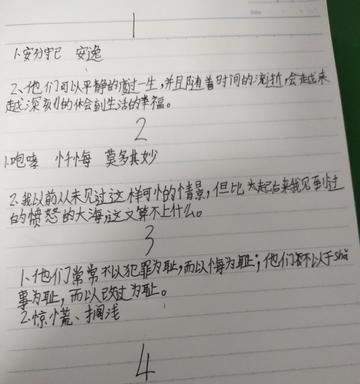 1
1、安分守己 安逸
2、他们可以平静的度过一生,并且随着时间的流逝,会越来
越深刻的体会到生活的幸福。
2
1.咆哮 忏悔 莫名其妙
2.我以前从未见过这样可怕的情景,但比起后来我见到过
的愤怒的大海,这又算不上什么。
3
1、他们常常不以犯罪为耻,而以悔为耻;他们不以干shǎ
事为耻,而以改过为耻。
2.惊慌、搁浅
4